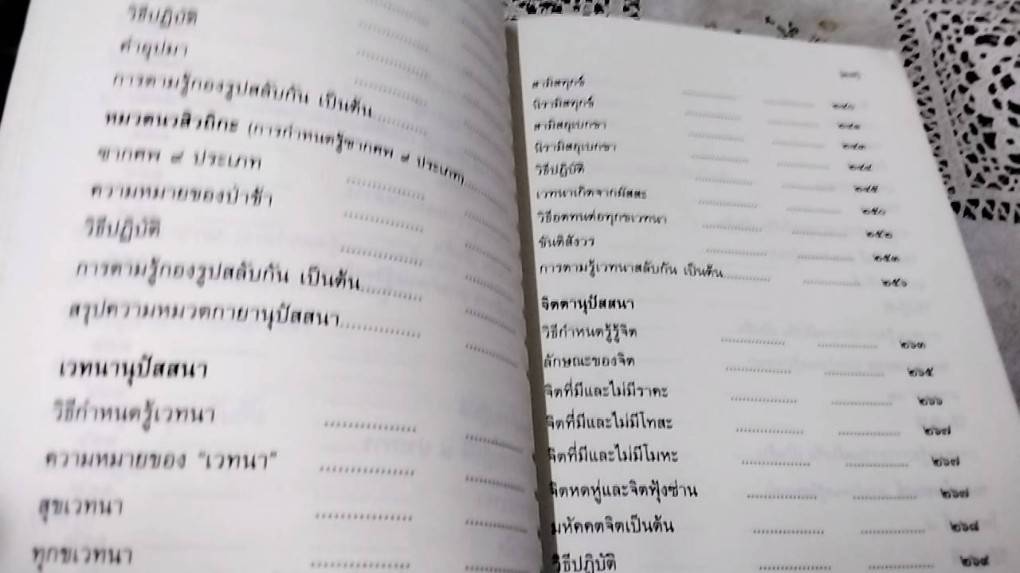 วิธีปฏิบัติ
คำอุปมา
การตามรู้กองรูปสลับกัน เป็นต้น
หมวดนวสิวถิกะ (การกำหนดรู้ซากศพ ๙ ประเภท)
ซากศพ ๙ ประเภท
ความหมายของป่าช้า
วิธีปฏิบัติ
การตามรู้กองรูปสลับกัน เป็นต้น
สรุปความหมวดกายานุปัสสนา
เวทนานุปัสสนา
วิธีกำหนดรู้เวทนา
ความหมายของ "เวทนา"
สุขเวทนา
ทุกขเวทนา
สามิสทุกข์
นิรามิสทุกข์ ๒๔๐
สามิสอุเบกขา
นิรามิสอุเบกขา ๒๔๓
วิธีปฏิบัติ ๒๔๔
เวทนาเกิดจากผัสสะ ๒๔๕
วิธีอดทนต่อทุกขเวทนา ๒๕๐
ขันติสังวร ๒๕๒
การตามรู้เวทนาสลับกัน เป็นต้น ๒๕๓
๒๕๖
จิตตานุปัสสนา
วิธีกำหนดรู้จิต ๒๖๓
ลักษณะของจิต ๒๖๕
จิตที่มีและไม่มีราคะ ๒๖๖
จิตที่มีและไม่มีโทสะ ๒๖๗
จิตที่มีและไม่มีโมหะ ๒๖๗
จิตหดหู่และจิตฟุ้งซ่าน ๒๖๗
มหัคคตจิตเป็นต้น ๒๖๘
วิธีปฏิบัติ ๒๖๙